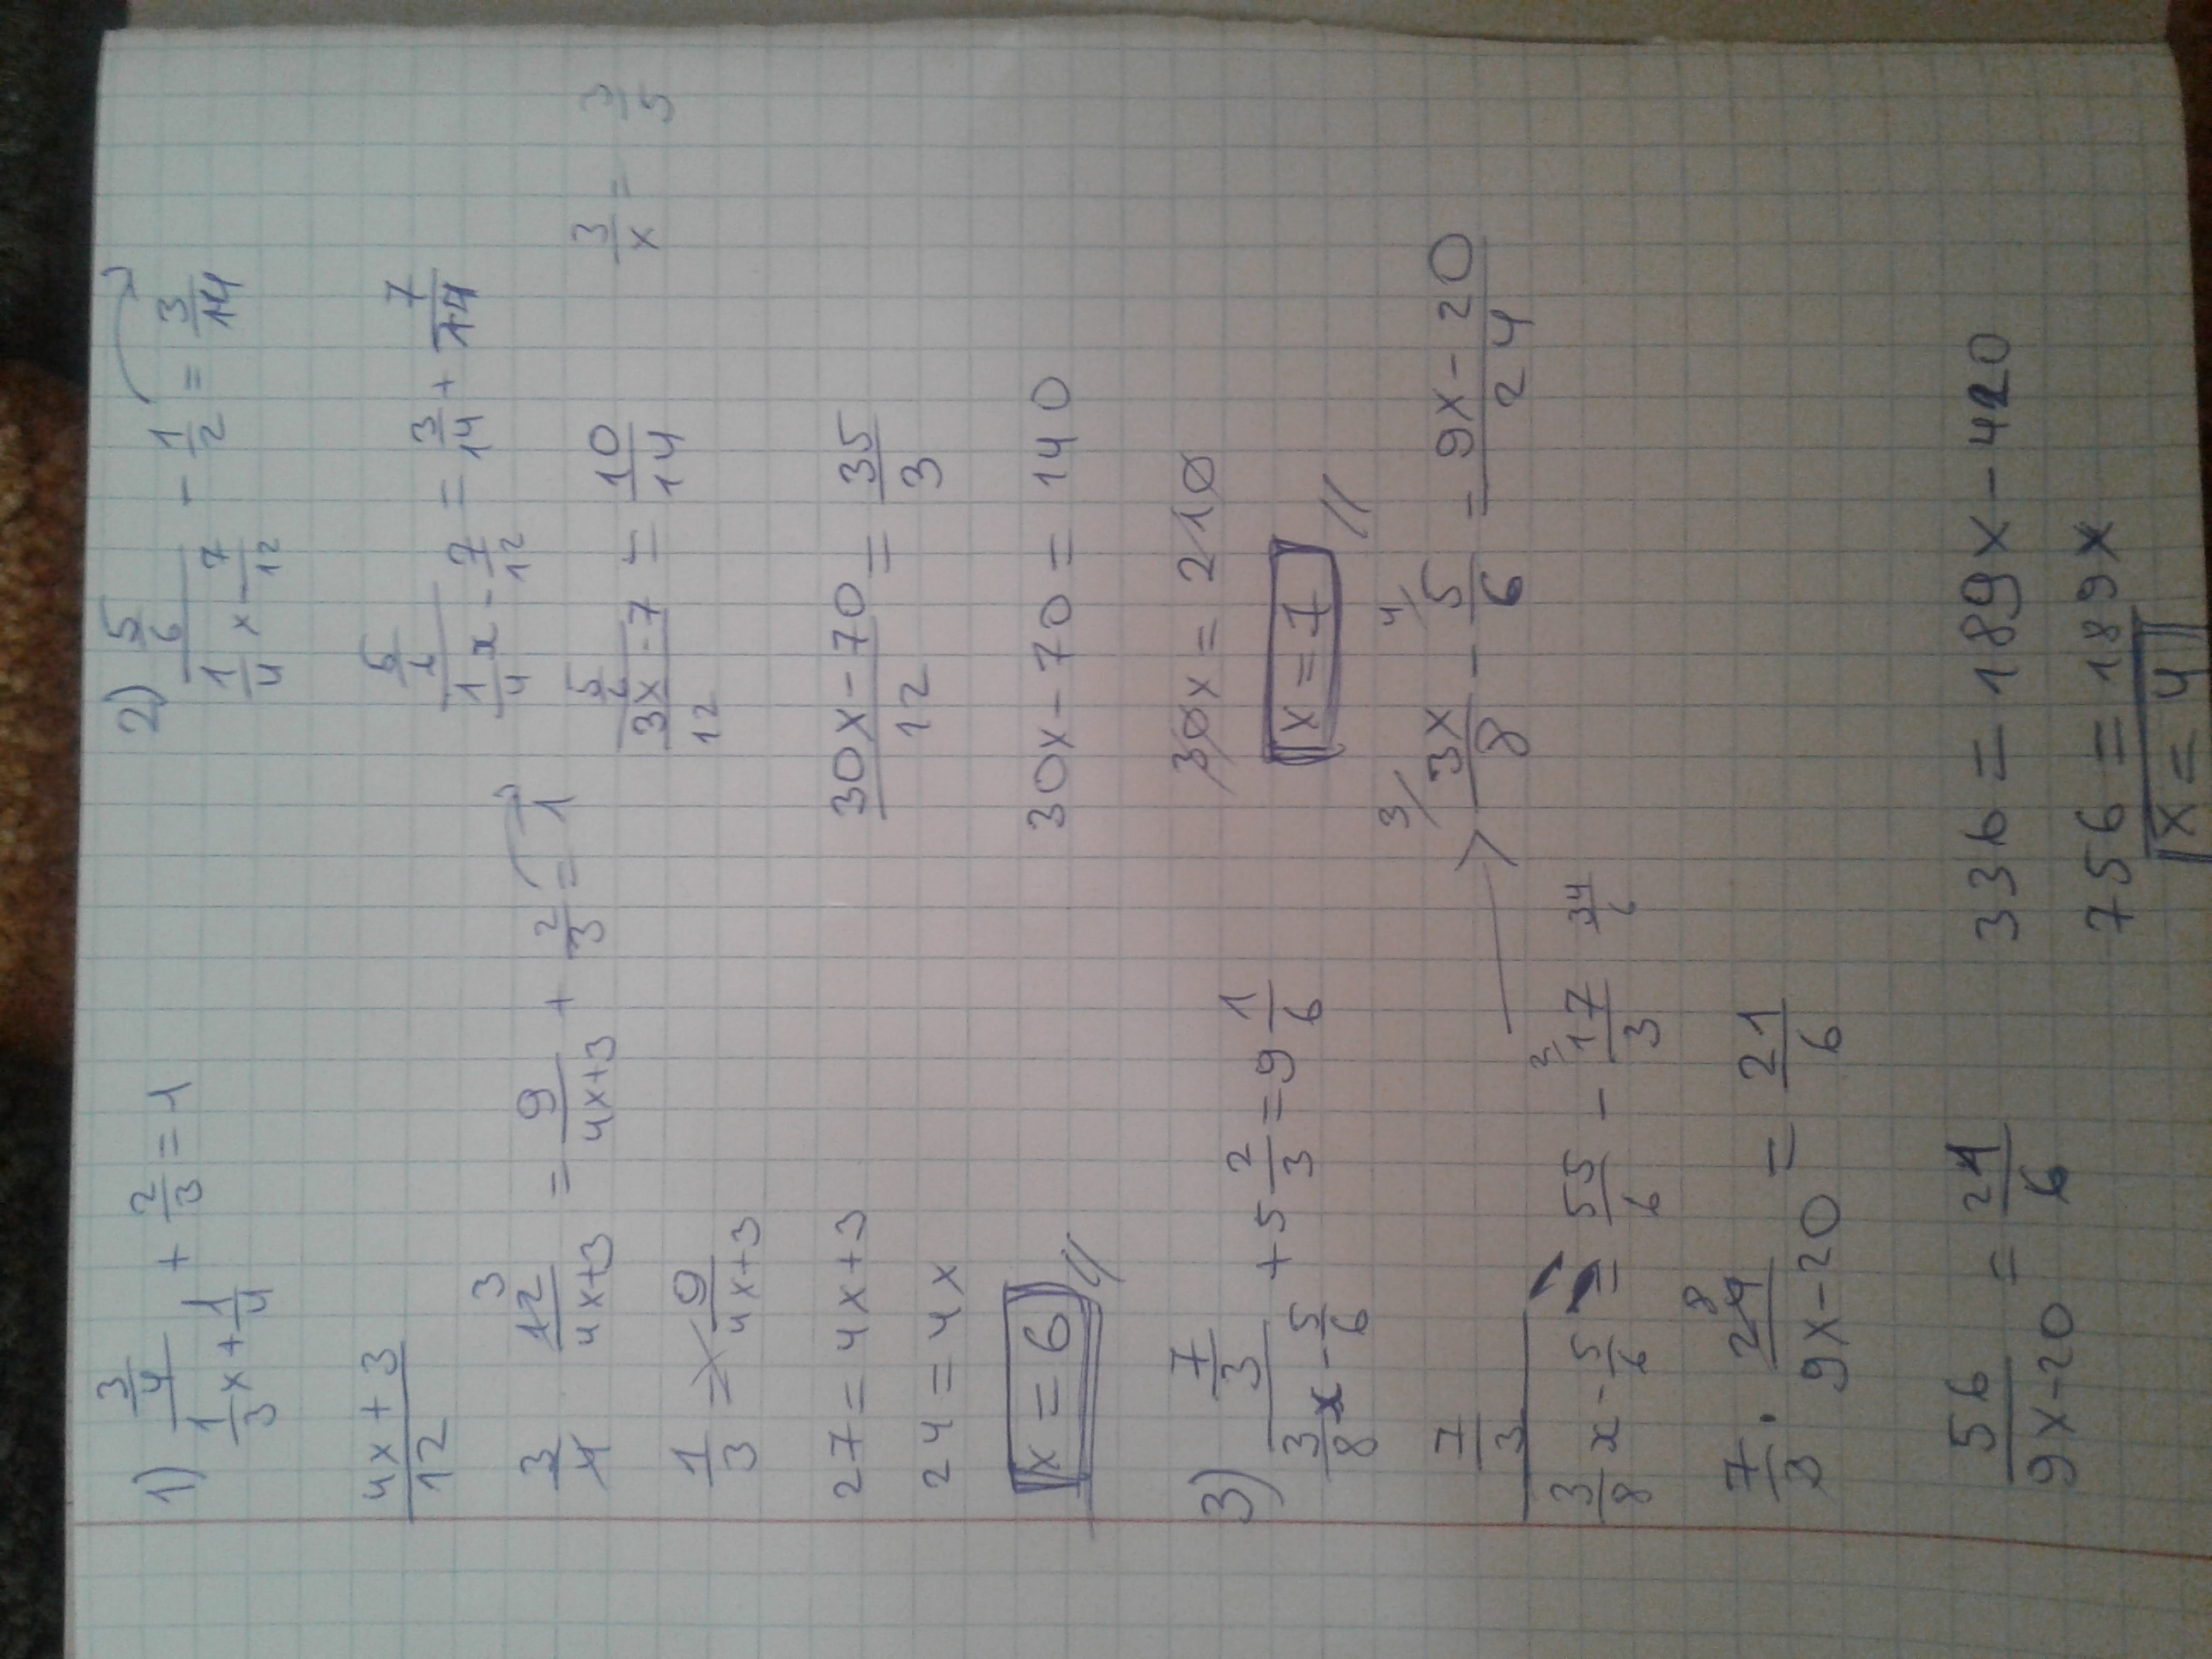 1) (3/4)/(1/3 x + 1/4) + 2/3 = 1
(4x + 3)/12
3/4 12/(4x+3) 3 = 9/(4x+3) + 2/3 = 1
1/3 = 9/(4x+3)
27 = 4x + 3
24 = 4x
x = 6
2) (5/6)/(1/4 x - 7/12) - 1/2 = 3/14
(5/6)/(1/4 x - 7/12) = 3/14 + 7/14
(5/6)/((3x - 7)/12) = 10/14
3/x = 3/5
(30x - 70)/12 = 35/3
30x - 70 = 140
30x = 210
x = 7
3) (7/3)/(3/8 x - 5/6) + 5 2/3 = 9 1/6
3/ 3x/8 - 4/ 5/6 = (9x - 20)/24
(7/3)/(3/8 x - 5/6) = 55/6 - 2/ 17/3 34/6
7/3 · 24/(9x-20) 8 = 21/6
56/(9x-20) = 21/6
336 = 189x - 420
756 = 189x
x = 4